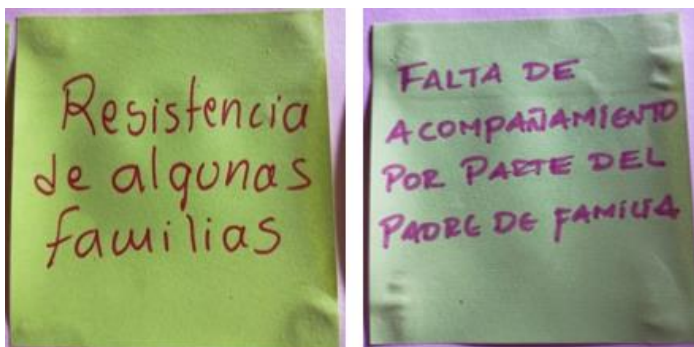 Resistencia
de algunas
familias
FALTA DE
ACOMPAÑAMIENTO
POR PARTE DEL
PADRE DE FAMILIA